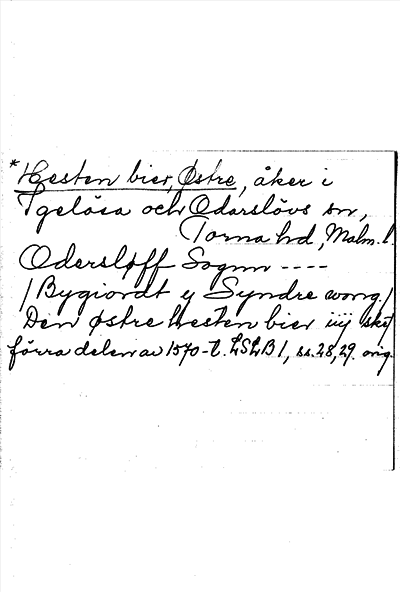 *Hesten bier, Østre, åker i
Igelösa och Odarslövs sn,
Torna hd, Malm. l.
Odersløff Sognn ----
/Bygiordt y Syndre wong./
Den østre hesten bier iiij skt
förra delen av 1570-t. LSLB 1, ss. 28, 29. orig.